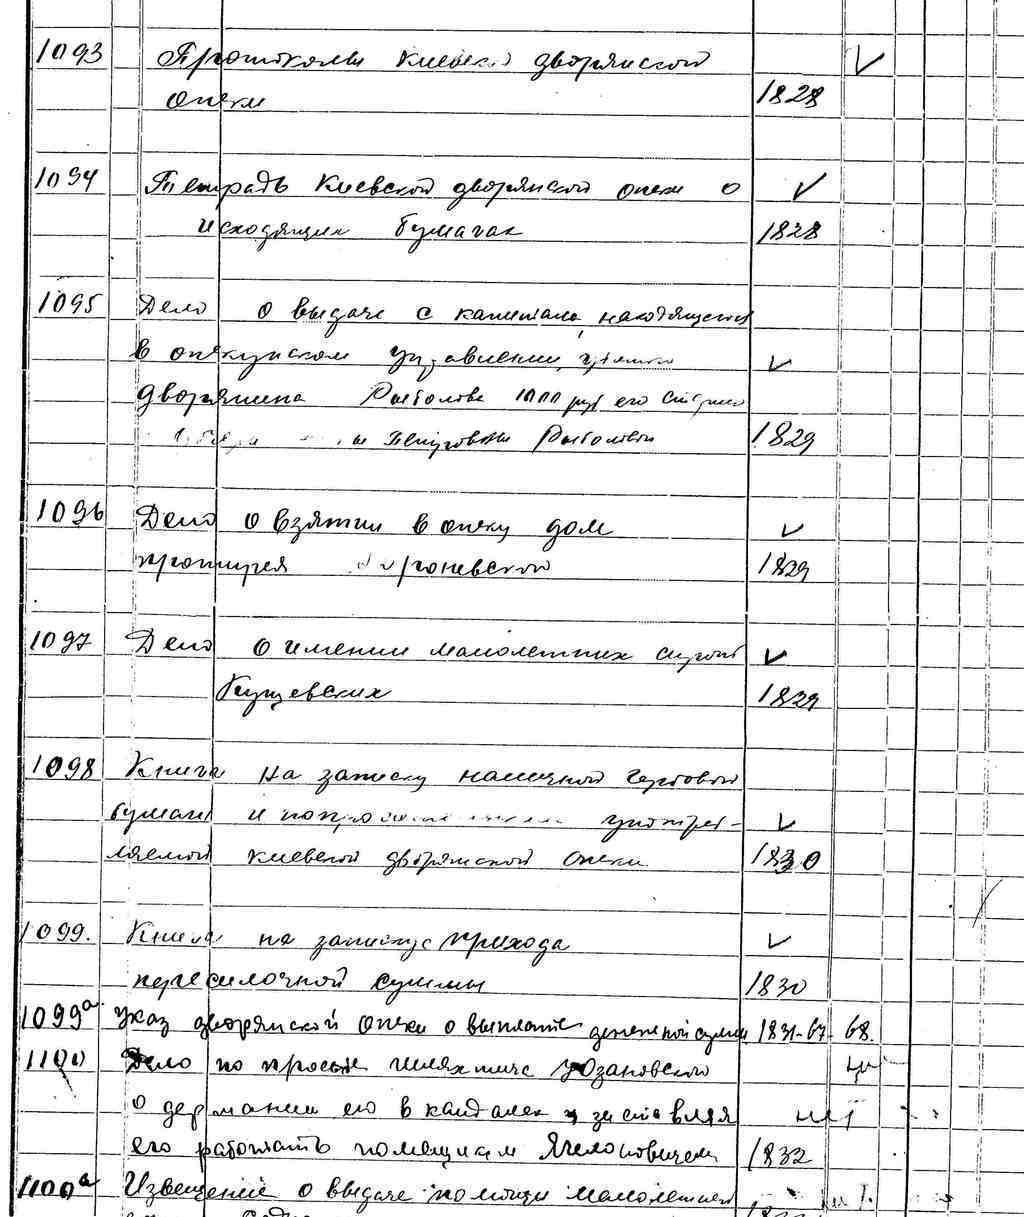 1093 Протоколы Киевской дворянской
опеки 1828
1094 Тетрадь Киевской дворянской опеки о
исходящих бумагах 1828
1095 Дело о выдаче с капитала, находящегося
в опекунском управлении,
дворянина Рыболова 1000 руб его
Рыболовой 1829
1096 Дело о взятии в опеку дом
протоиерея 1829
1097 Дело о имении малолетних сирот
Кущевских 1829
1098 Книга на записку наличной гербовой
бумаги и употреб-
ляемой Киевской дворянской опеки 1830
1099. Книга на записку прихода
пересылочной суммы 1830
1099а Указ дворянской опеки о выплате денежной суммы 1831-67-68.
1100 Дело по просьбе шляхтича
о держании его в кандалах и заставляя
его работать помещиком 1832
1100а Извещение о выдаче помощи малолетней